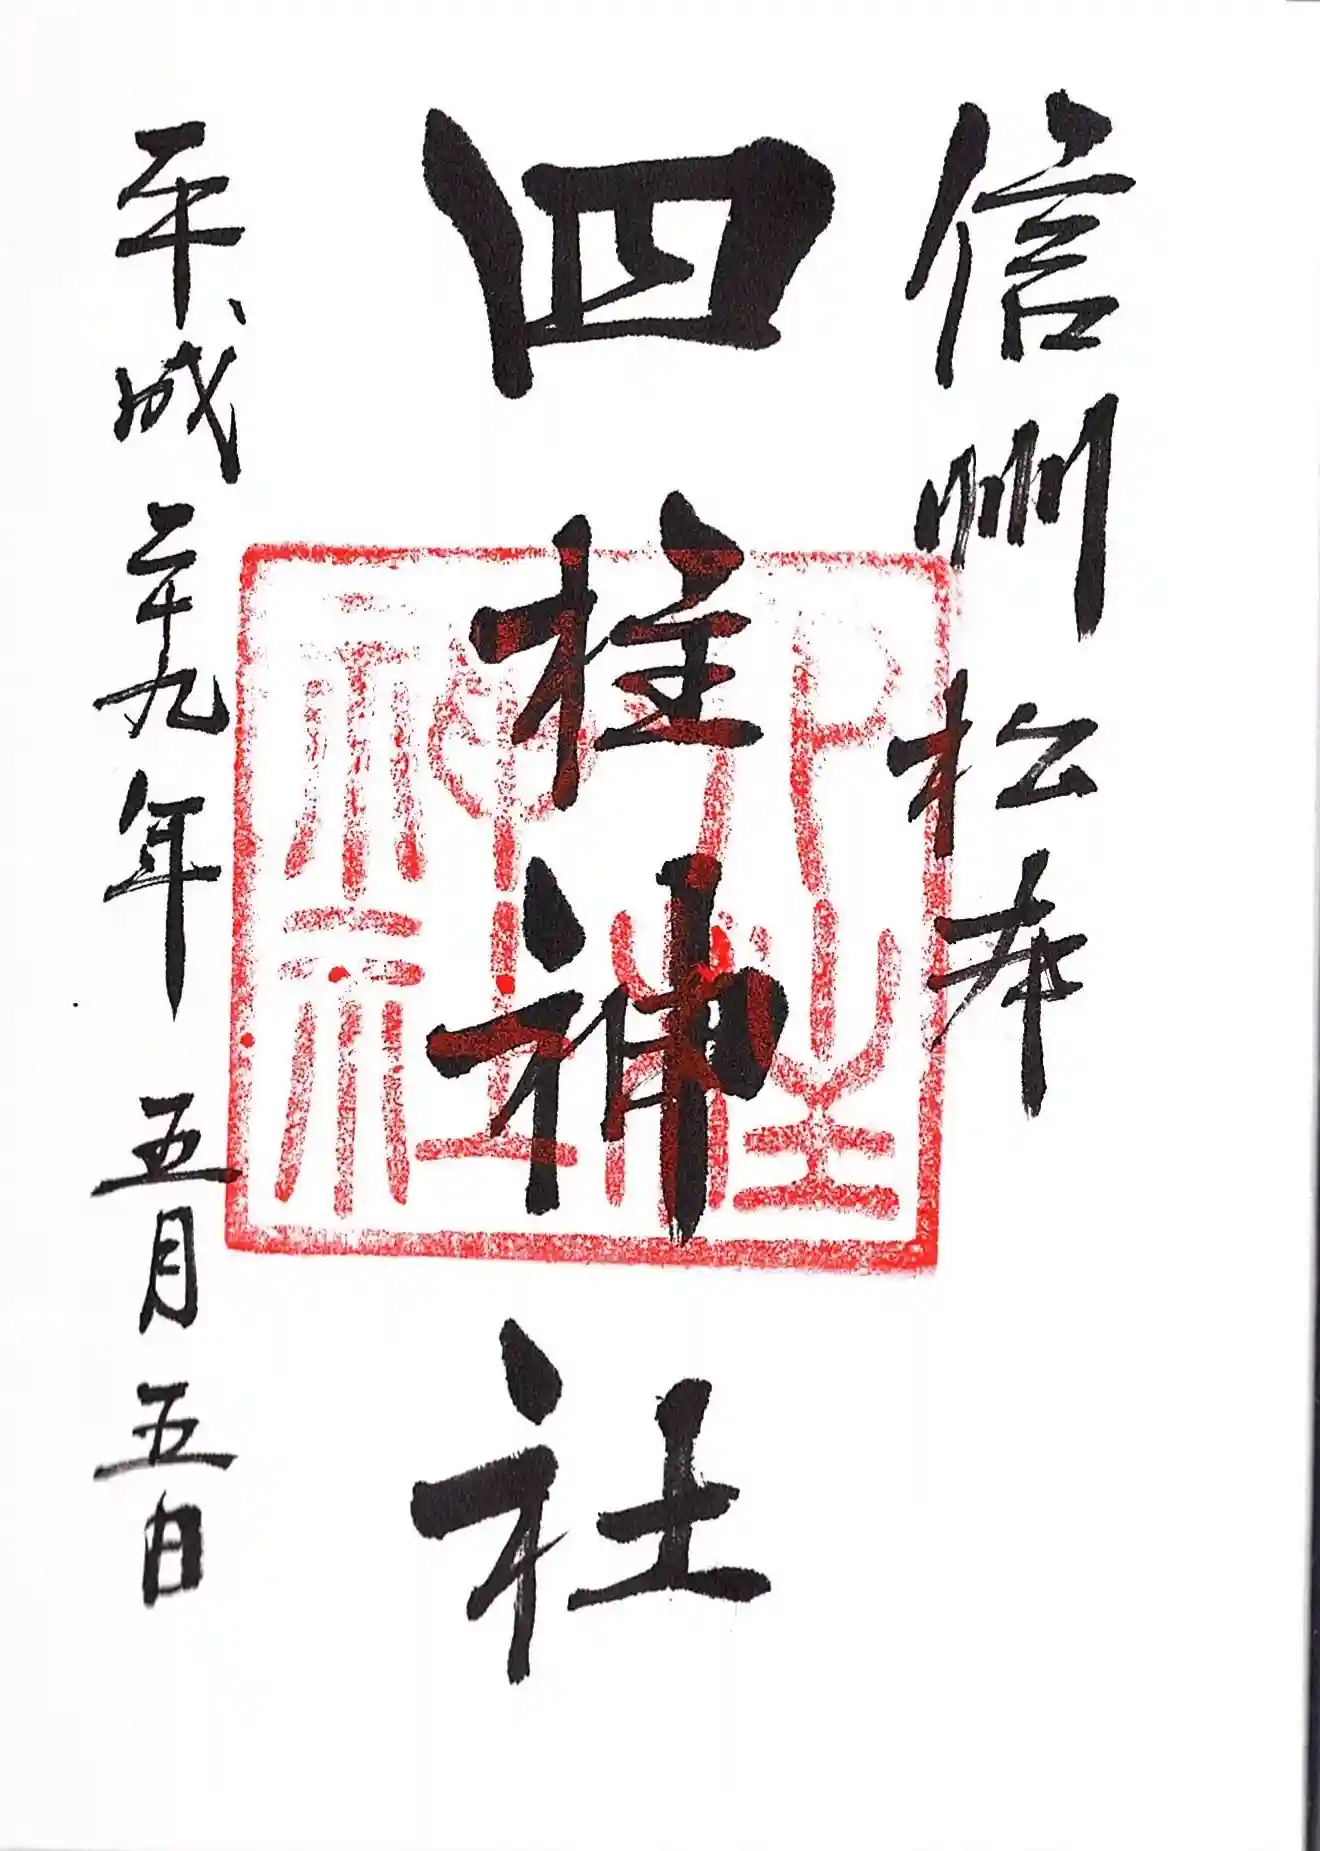 信州松本
四柱神社
平成二十九年 五月五日
四柱
神社